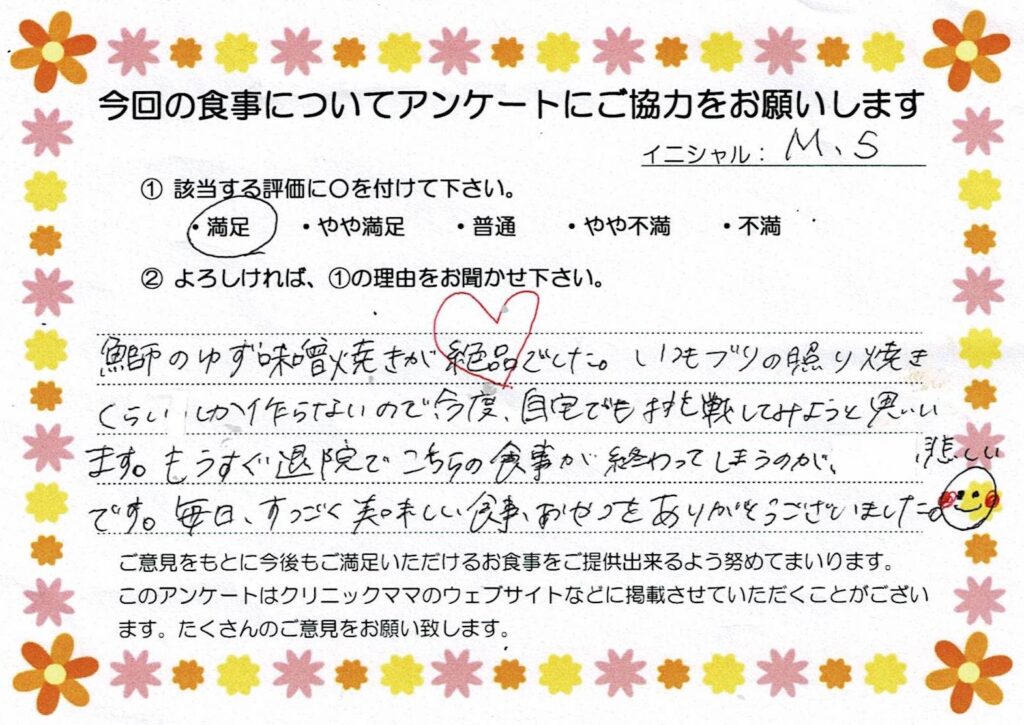 今回の食事についてアンケートにご協力をお願いします
イニシャル： M.S
① 該当する評価に〇を付けて下さい。
・満足 ・やや満足 ・普通 ・やや不満 ・不満
② よろしければ、①の理由をお聞かせ下さい。
鰤のゆず味噌焼きが絶品でした。いつもブリの照り焼き
くらいしか作らないので今度、自宅でも挑戦してみようと思い
ます。もうすぐ退院でこちらの食事が終わってしまうのが、悲しい
です。毎日、すっごく美味しい食事、おやつをありがとうございました。
ご意見をもとに今後もご満足いただけるお食事をご提供出来るよう努めてまいります。
このアンケートはクリニックママのウェブサイトなどに掲載させていただくことがござい
ます。たくさんのご意見をお願い致します。